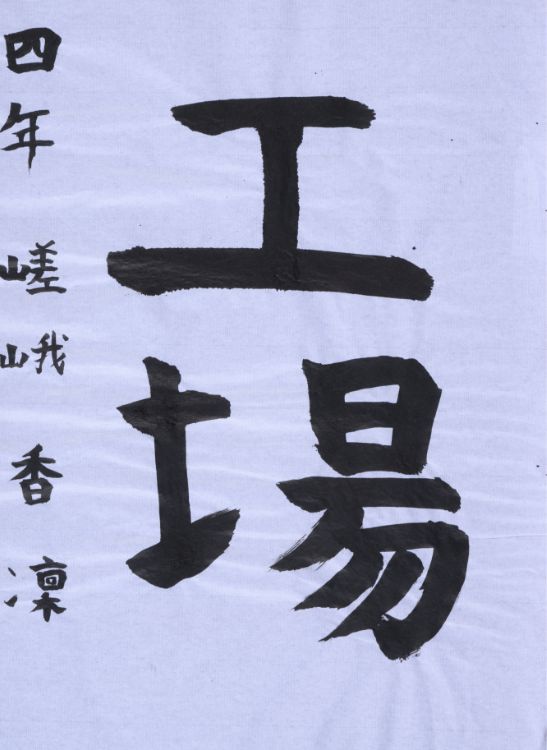 工場
四年 嵯峨 香凜